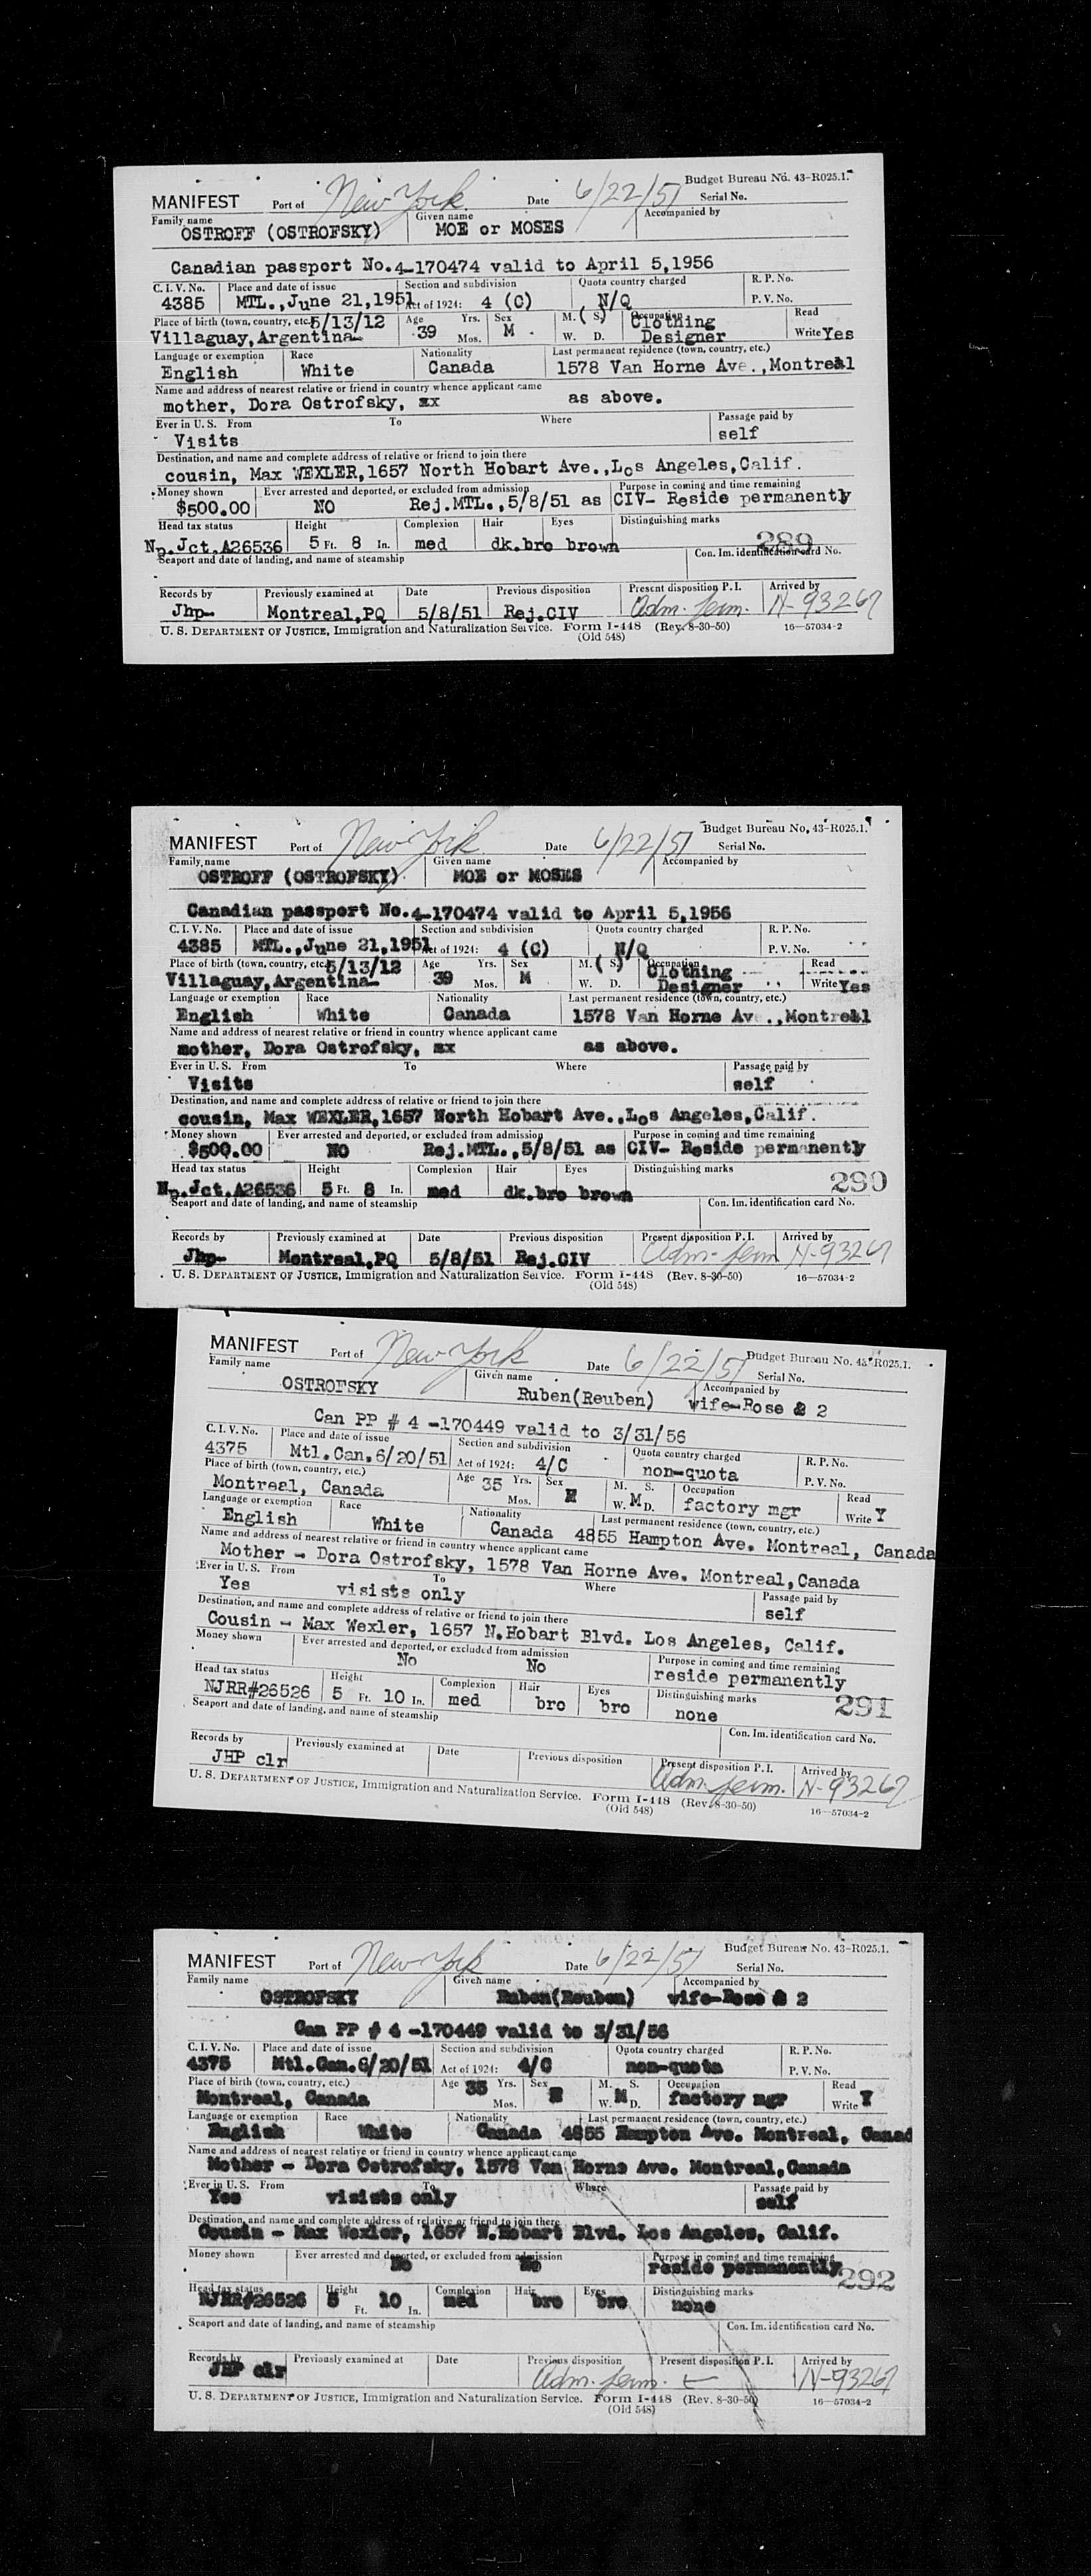 Budget Bureau No. 43-R025.1.
MANIFEST Port of New York Date 6/22/51 Serial No.
Family name Given name Accompanied by
OSTROFF (OSTROFSKY) MOE or MOSES
Canadian passport No.4-170474 valid to April 5,1956
C. I. V. No. Place and date of issue Section and subdivision Quota country charged R. P. No.
4385 MTL.,June 21,1951 Act of 1924: 4 (C) N/Q P. V. No.
Place of birth (town, country, etc.) 5/13/12 Age Yrs. Sex M. ( S) Occupation Clothing Read
Villaguay,Argentina- 39 Mos. M W. D. Designer Write Yes
Language or exemption Race Nationality Last permanent residence (town, country, etc.)
English White Canada 1578 Van Horne Ave.,Montreal
Name and address of nearest relative or friend in country whence applicant came
mother, Dora Ostrofsky, xx as above.
Ever in U. S. From To Where Passage paid by
Visits self
Destination, and name and complete address of relative or friend to join there
cousin, Max WEXLER,1657 North Hobart Ave.,Los Angeles,Calif.
Money shown Ever arrested and deported, or excluded from admission Purpose in coming and time remaining
$500.00 NO Rej.MTL.,5/8/51 as CIV- Reside permanently
Head tax status Height Complexion Hair Eyes Distinguishing marks 289
Np.Jct.A26536 5 Ft. 8 In. med dk.bro brown
Seaport and date of landing, and name of steamship Con. Im. identification card No.
Records by Previously examined at Date Previous disposition Present disposition P. I. Arrived by
Jhp- Montreal,PQ 5/8/51 Rej.CIV Adm. perm. N-93267
U. S. DEPARTMENT OF JUSTICE, Immigration and Naturalization Service. Form I-448 (Rev. 8-30-50) 16—57034-2
(Old 548)
Budget Bureau No. 43-R025.1.
MANIFEST Port of New York Date 6/22/51 Serial No.
Family name Given name Accompanied by
OSTROFF (OSTROFSKY) MOE or MOSES
Canadian passport No.4-170474 valid to April 5,1956
C. I. V. No. Place and date of issue Section and subdivision Quota country charged R. P. No.
4385 MTL.,June 21,1951 Act of 1924: 4 (C) N/Q P. V. No.
Place of birth (town, country, etc.) 5/13/12 Age Yrs. Sex M. ( S) Occupation Clothing Read
Villaguay,Argentina- 39 Mos. M W. D. Designer Write Yes
Language or exemption Race Nationality Last permanent residence (town, country, etc.)
English White Canada 1578 Van Horne Av .,Montreal
Name and address of nearest relative or friend in country whence applicant came
mother, Dora Ostrofsky, xx as above.
Ever in U. S. From To Where Passage paid by
Visits self
Destination, and name and complete address of relative or friend to join there
cousin, Max WEXLER,1657 North Hobart Ave.,Los Angeles,Calif.
Money shown Ever arrested and deported, or excluded from admission Purpose in coming and time remaining
$500.00 NO Rej.MTL.,5/8/51 as CIV- Reside permanently
Head tax status Height Complexion Hair Eyes Distinguishing marks 290
Np.Jct.A26536 5 Ft. 8 In. med dk.bro brown
Seaport and date of landing, and name of steamship Con. Im. identification card No.
Records by Previously examined at Date Previous disposition Present disposition P. I. Arrived by
Jhp- Montreal,PQ 5/8/51 Rej.CIV Adm. perm N-93267
U. S. DEPARTMENT OF JUSTICE, Immigration and Naturalization Service. Form I-448 (Rev. 8-30-50) 16—57034-2
(Old 548)
Budget Bureau No. 43-R025.1.
MANIFEST Port of New York Date 6/22/51 Serial No.
Family name Given name Accompanied by
OSTROFSKY Ruben(Reuben) wife-Rose & 2
Can PP # 4 -170449 valid to 3/31/56
C. I. V. No. Place and date of issue Section and subdivision Quota country charged R. P. No.
4375 Mtl.Can.6/20/51 Act of 1924: 4/C non-quota P. V. No.
Place of birth (town, country, etc.) Age 35 Yrs. Sex M. S. Occupation Read
Montreal, Canada Mos. M W. M D. factory mgr Write Y
Language or exemption Race Nationality Last permanent residence (town, country, etc.)
English White Canada 4855 Hampton Ave. Montreal, Canada
Name and address of nearest relative or friend in country whence applicant came
Mother - Dora Ostrofsky, 1578 Van Horne Ave. Montreal,Canada
Ever in U. S. From To Where Passage paid by
Yes visists only self
Destination, and name and complete address of relative or friend to join there
Cousin - Max Wexler, 1657 N.Hobart Blvd. Los Angeles, Calif.
Money shown Ever arrested and deported, or excluded from admission Purpose in coming and time remaining
No No reside permanently
Head tax status Height Complexion Hair Eyes Distinguishing marks 291
NJRR#26526 5 Ft. 10 In. med bro bro none
Seaport and date of landing, and name of steamship Con. Im. identification card No.
Records by Previously examined at Date Previous disposition Present disposition P. I. Arrived by
JHP clr Adm. perm. N-93267
U. S. DEPARTMENT OF JUSTICE, Immigration and Naturalization Service. Form I-448 (Rev. 8-30-50) 16—57034-2
(Old 548)
Budget Bureau No. 43-R025.1.
MANIFEST Port of New York Date 6/22/51 Serial No.
Family name Given name Accompanied by
OSTROFSKY Ruben(Reuben) wife-Rose & 2
Can PP # 4 -170449 valid to 3/31/56
C. I. V. No. Place and date of issue Section and subdivision Quota country charged R. P. No.
4375 Mtl.Can.6/20/51 Act of 1924: 4/C non-quota P. V. No.
Place of birth (town, country, etc.) Age 35 Yrs. Sex M. S. Occupation Read
Montreal, Canada Mos. M W. M D. factory mgr Write Y
Language or exemption Race Nationality Last permanent residence (town, country, etc.)
English White Canada 4855 Hampton Ave. Montreal, Canad
Name and address of nearest relative or friend in country whence applicant came
Mother - Dora Ostrofsky, 1578 Van Horne Ave. Montreal,Canada
Ever in U. S. From To Where Passage paid by
Yes visists only self
Destination, and name and complete address of relative or friend to join there
Cousin - Max Wexler, 1657 N.Hobart Blvd. Los Angeles, Calif.
Money shown Ever arrested and deported, or excluded from admission Purpose in coming and time remaining
No No reside permanently 292
Head tax status Height Complexion Hair Eyes Distinguishing marks
NJRR#26526 5 Ft. 10 In. med bro bro none
Seaport and date of landing, and name of steamship Con. Im. identification card No.
Records by Previously examined at Date Previous disposition Present disposition P. I. Arrived by
JHP clr Adm. perm. N-93267
U. S. DEPARTMENT OF JUSTICE, Immigration and Naturalization Service. Form I-448 (Rev. 8-30-50) 16—57034-2
(Old 548)